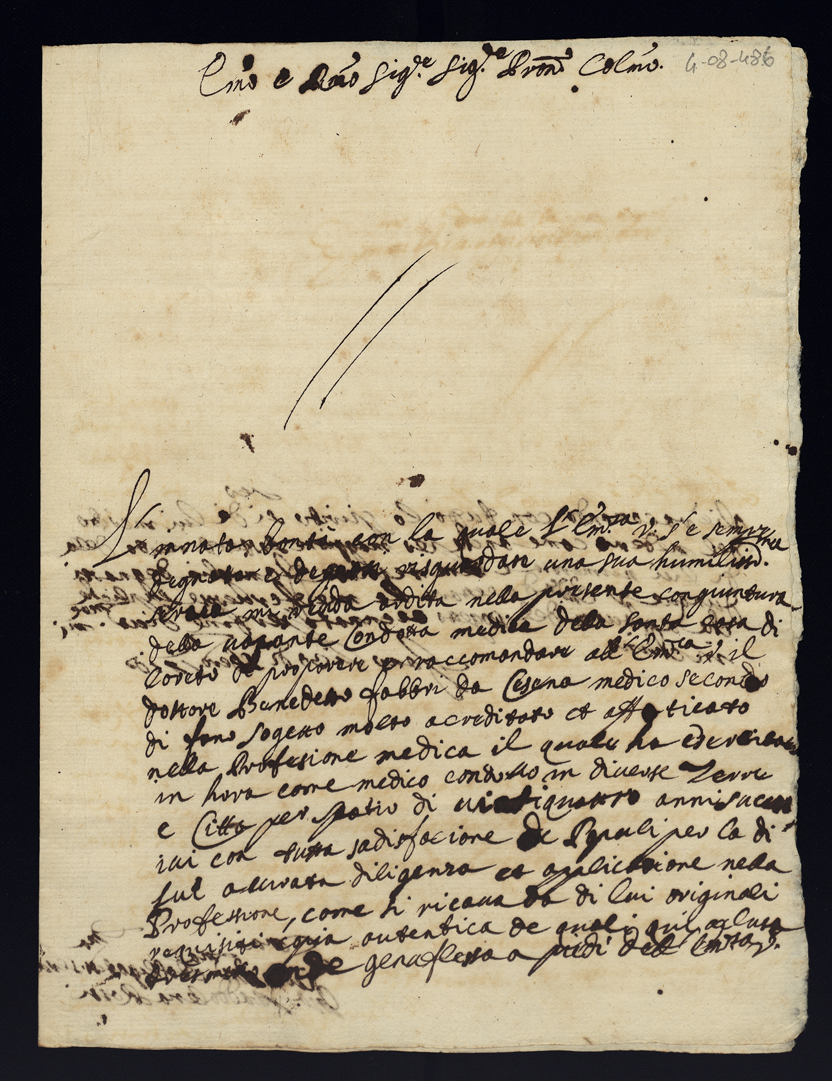 Emo e Rmo Sig.e Sig.e Prone Colmo.
4-08-486
L'innata bontà con la quale l'Emza V. s'e sempre
degnata riguardare una sua humiliss.
serva mi renda ardita nella presente congiuntura
della vacante Condotta medica della Santa Casa di
Loreto di proporre e raccomandare all'Emza V. il
dottore Benedetto Fabbri da Cesena medico secondo
di fano sogetto molto acreditato et affaticato
nella Profesione medica il quale ha esercitato
in hora come medico condotto in diverse Terre
e Citta per spatio di vintiquattro anni
con tutta sadisfacione de Populi per la di
lui acurata diligenza et aplicatione nella
Professione, come si ricava da di lui originali
requisiti copia autentica de quali qui aclusa
onde genuflessa a piedi dell'Emza V.